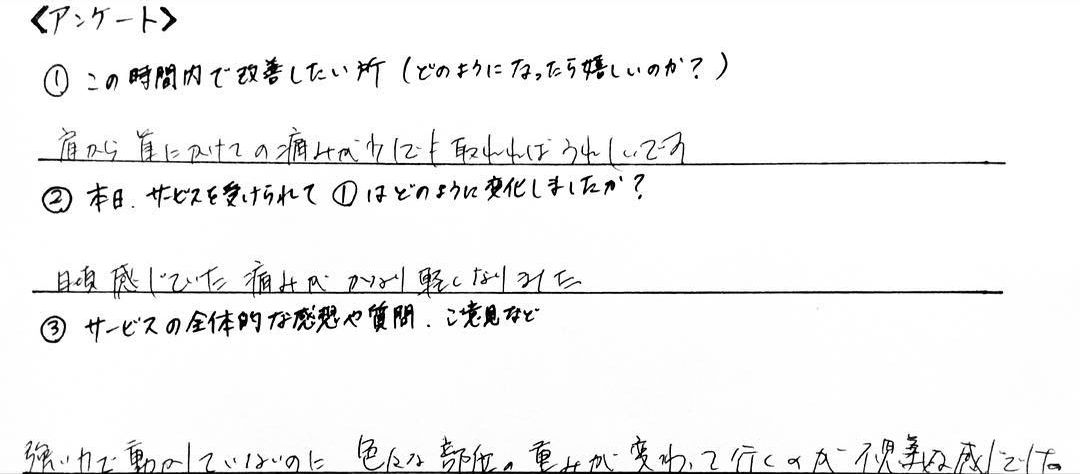 〈アンケート〉
① この時間内で改善したい所（どのようになったら嬉しいのか？）
肩から首にかけての痛みが少しでも取れればうれしいです
② 本日、サービスを受けられて①はどのように変化しましたか？
日頃感じていた痛みがかなり軽くなりました
③ サービスの全体的な感想や質問、ご意見など
強い力で動かしていないのに色々な部位の重みが変わって行くのが不思議な感じでした